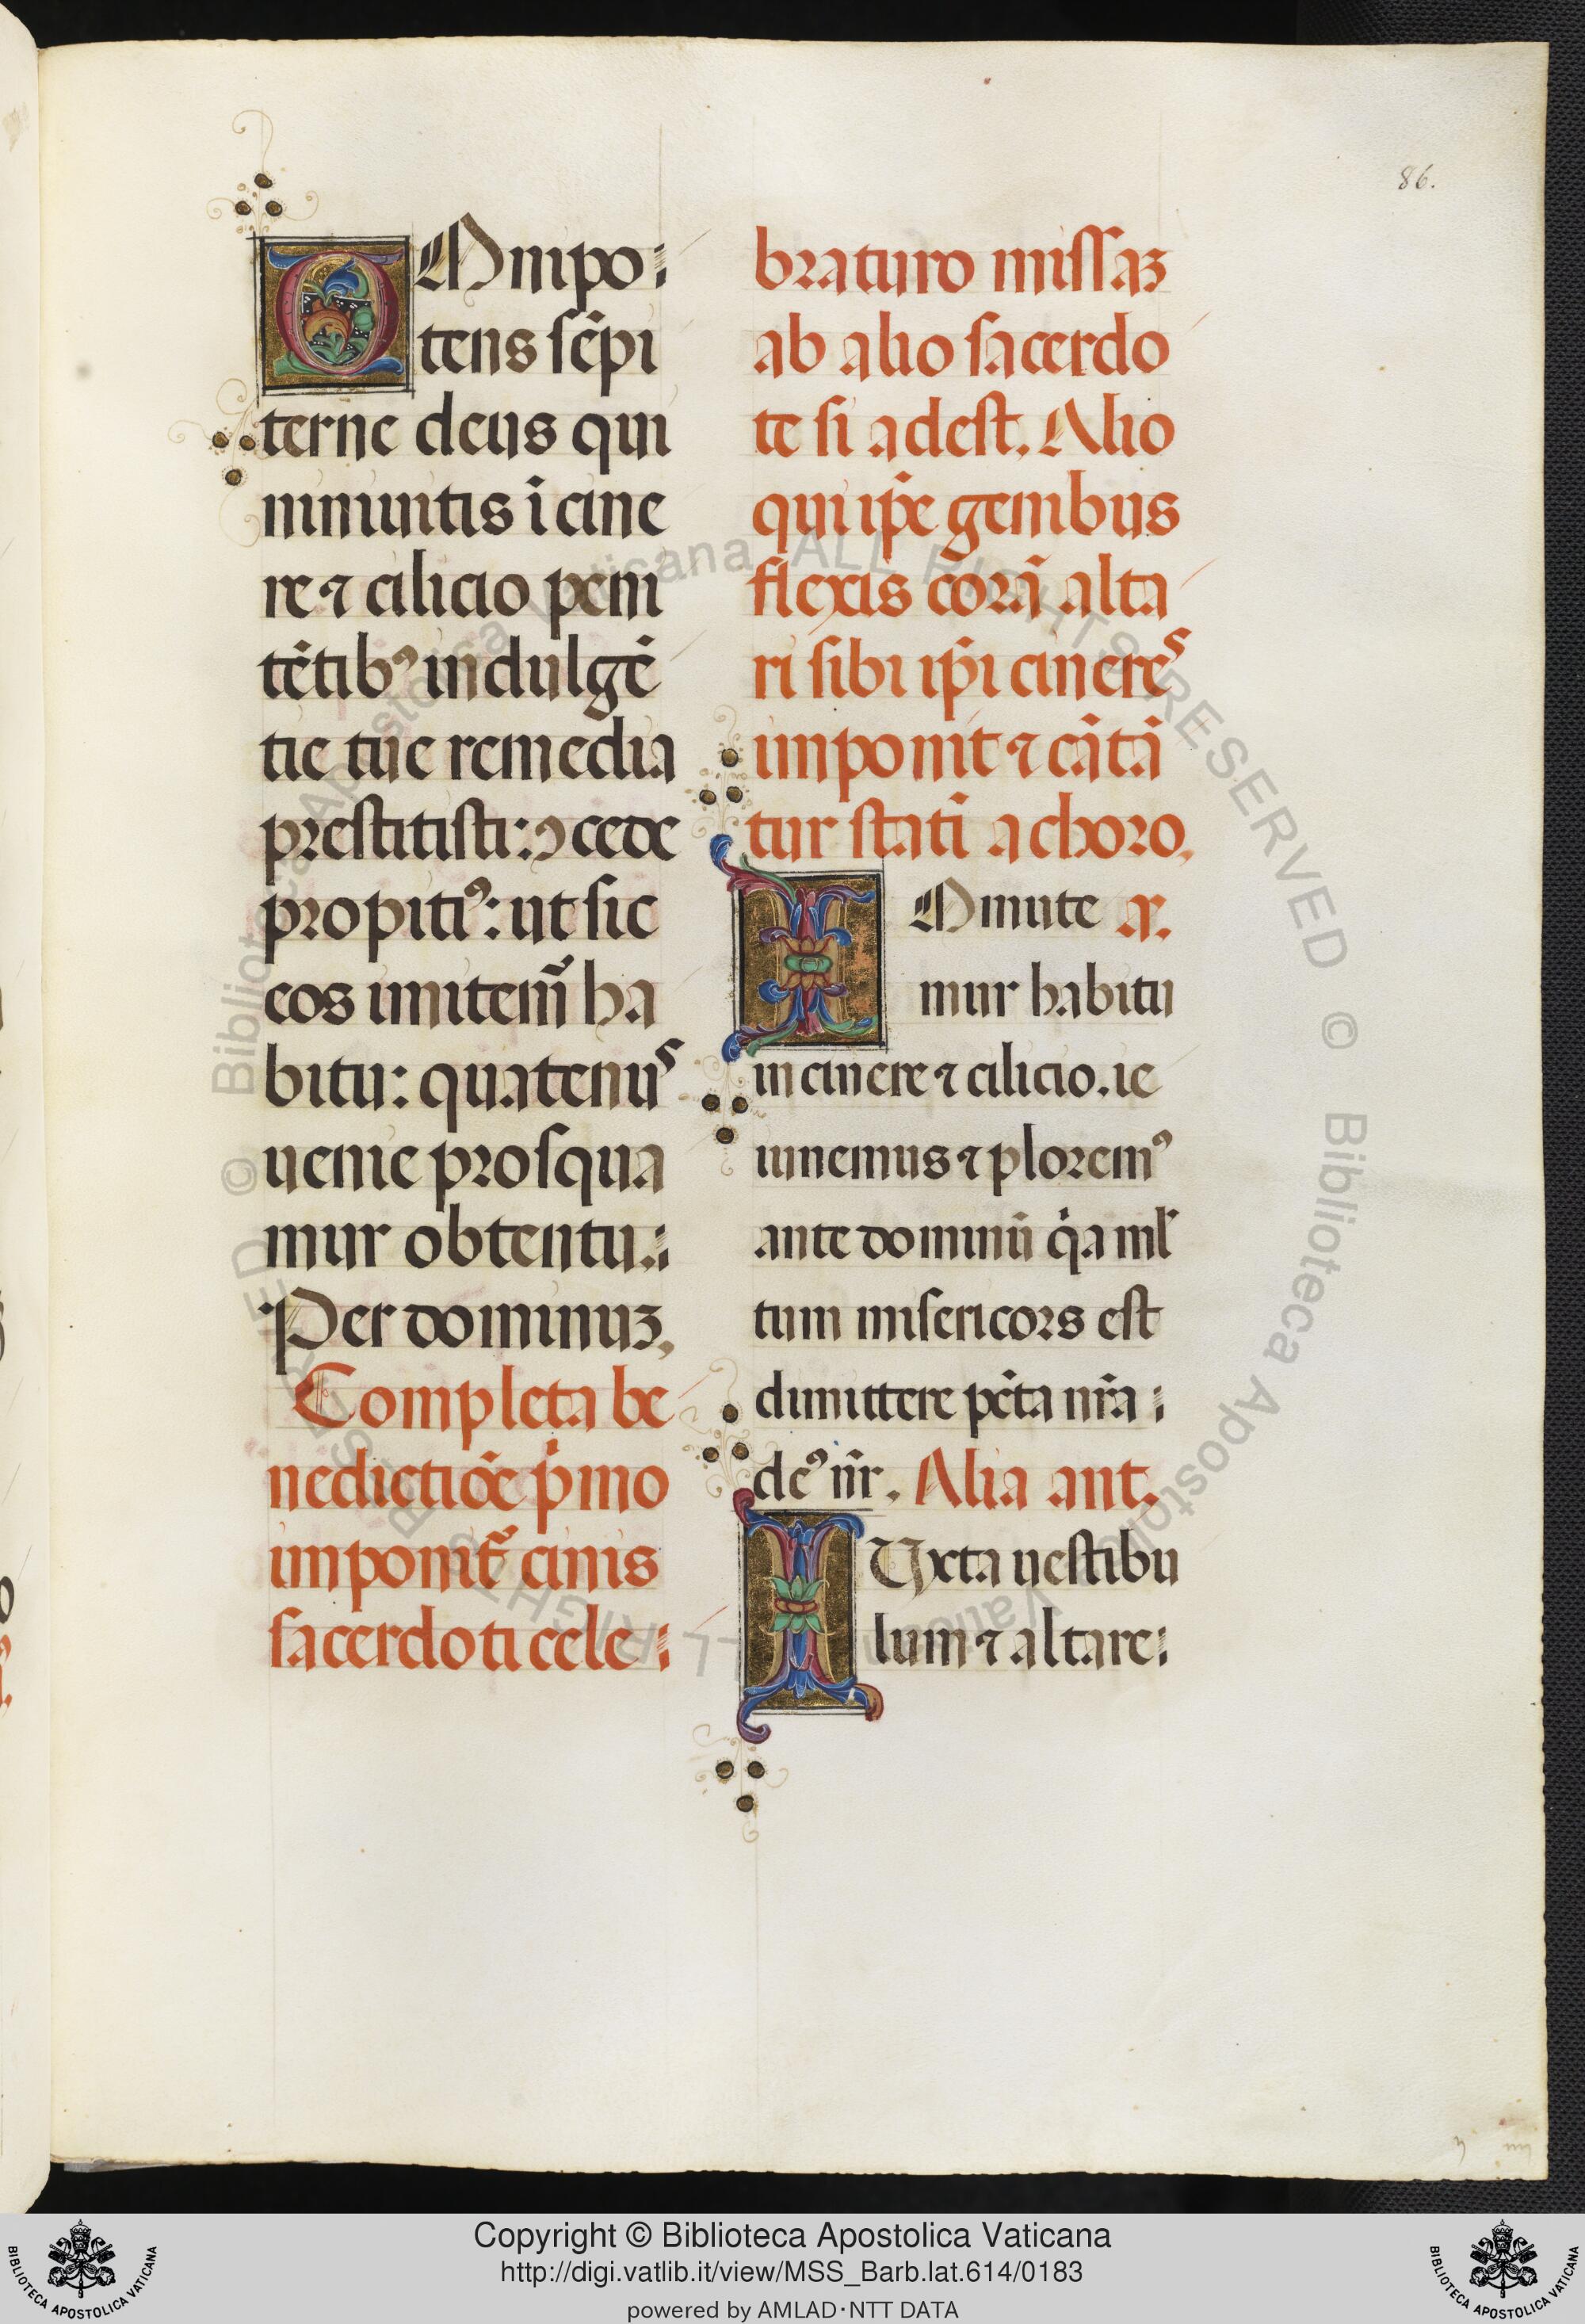 86.
OMnipo:
tens se͂pi
terne deus qui
niniuitis i͂ cine
re ⁊ cilicio peni
te͂tibꝰ indulge͂
tie tue remedia
prestitisti: ꝯcede
propitiꝰ: ut sic
eos imitem͂ ha
bitu: quatenus
uenie prosequa
mur obtentu.:
Per dominuꝫ.
Completa be
nedictio͂e p͂mo
imponit͂ cinis
sacerdoti cele:
braturo missaꝫ
ab alio sacerdo
te si adest. Alio
qui ip͂e genibus
flexis cora͂ alta
ri sibi ip͂i cineres
imponit ⁊ ca͂ta͂
tur stati͂ a choro.
IMmute a͂.
mur habitu
in cinere ⁊ cilicio. ie
iunemus ⁊ ploremꝰ
ante dominu͂ q͂a ml͂
tum misericors est
dimittere pc͂ta nr͂a:
deꝰ nr͂. Alia ant.
IUxta uestibu
lum ⁊ altare:
Copyright © Biblioteca Apostolica Vaticana
http://digi.vatlib.it/view/MSS_Barb.lat.614/0183
powered by AMLAD·NTT DATA
BIBLIOTECA APOSTOLICA VATICANA
BIBLIOTECA APOSTOLICA VATICANA